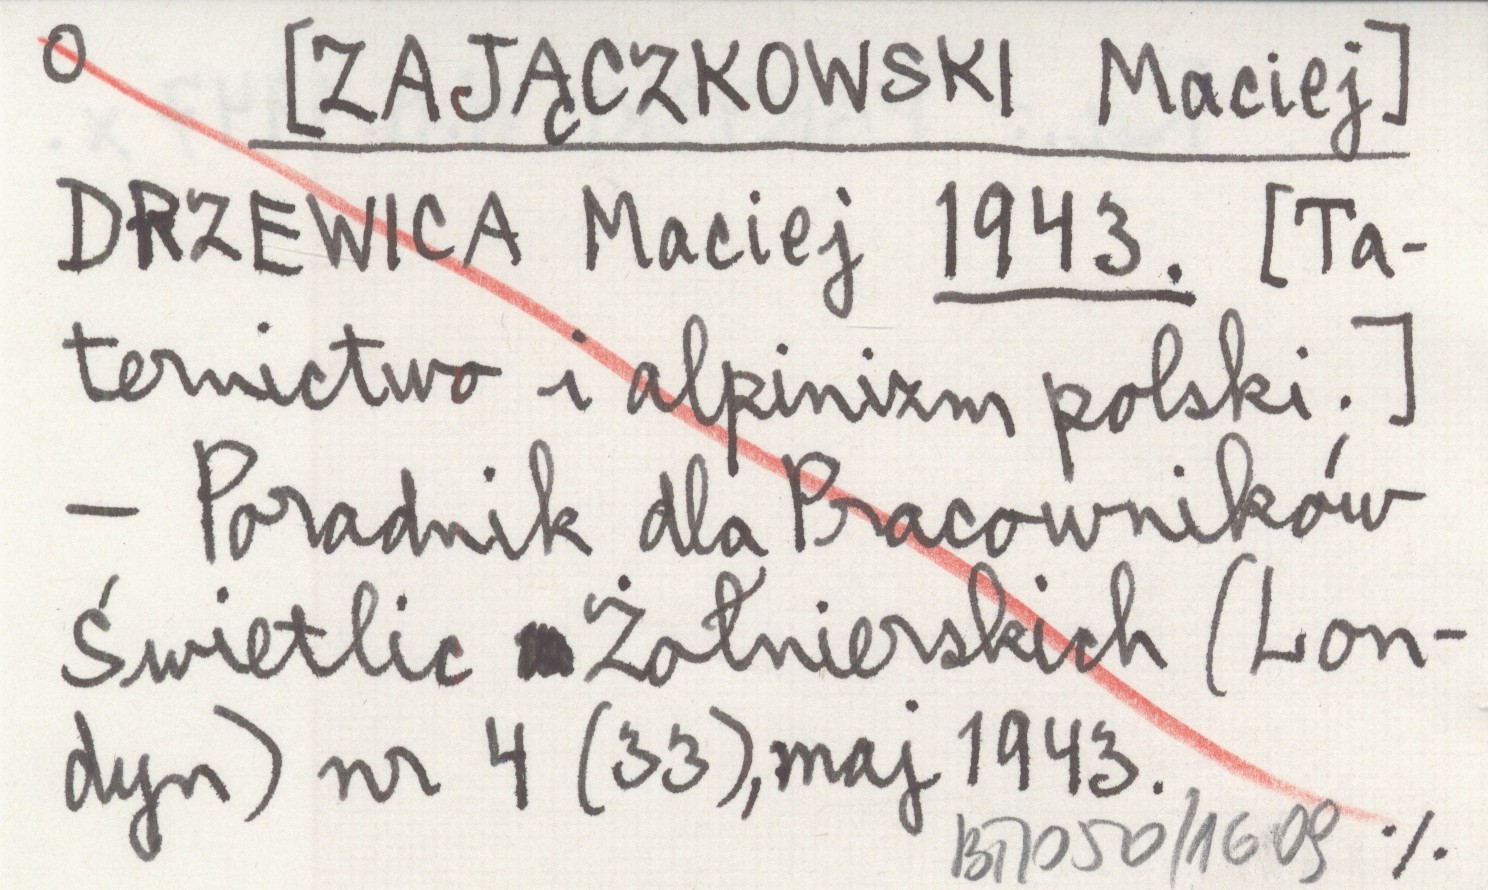 O [ZAJĄCZKOWSKI Maciej]
DRZEWICA Maciej 1943. [Ta-
ternictwo i alpinizm polski.]
— Poradnik dla Pracowników
Świetlic Żołnierskich (Lon-
dyn) nr 4 (33), maj 1943.
050/1609 ./.